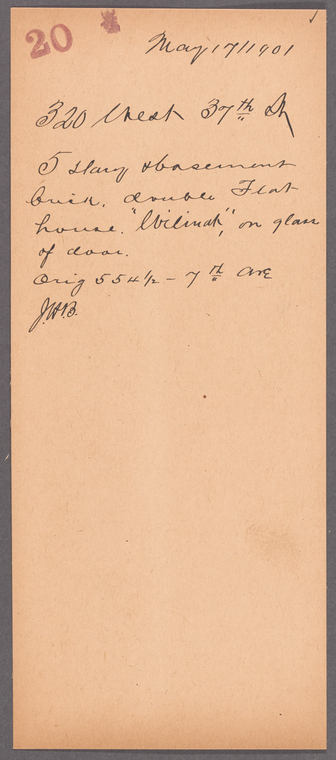 20
May 17/1901
320 West 37th St
5 story & basement
brick, double Flat
house. "Wilmot", on glass
of door.
Orig 554 1/2 - 7th Ave
J.W.B.